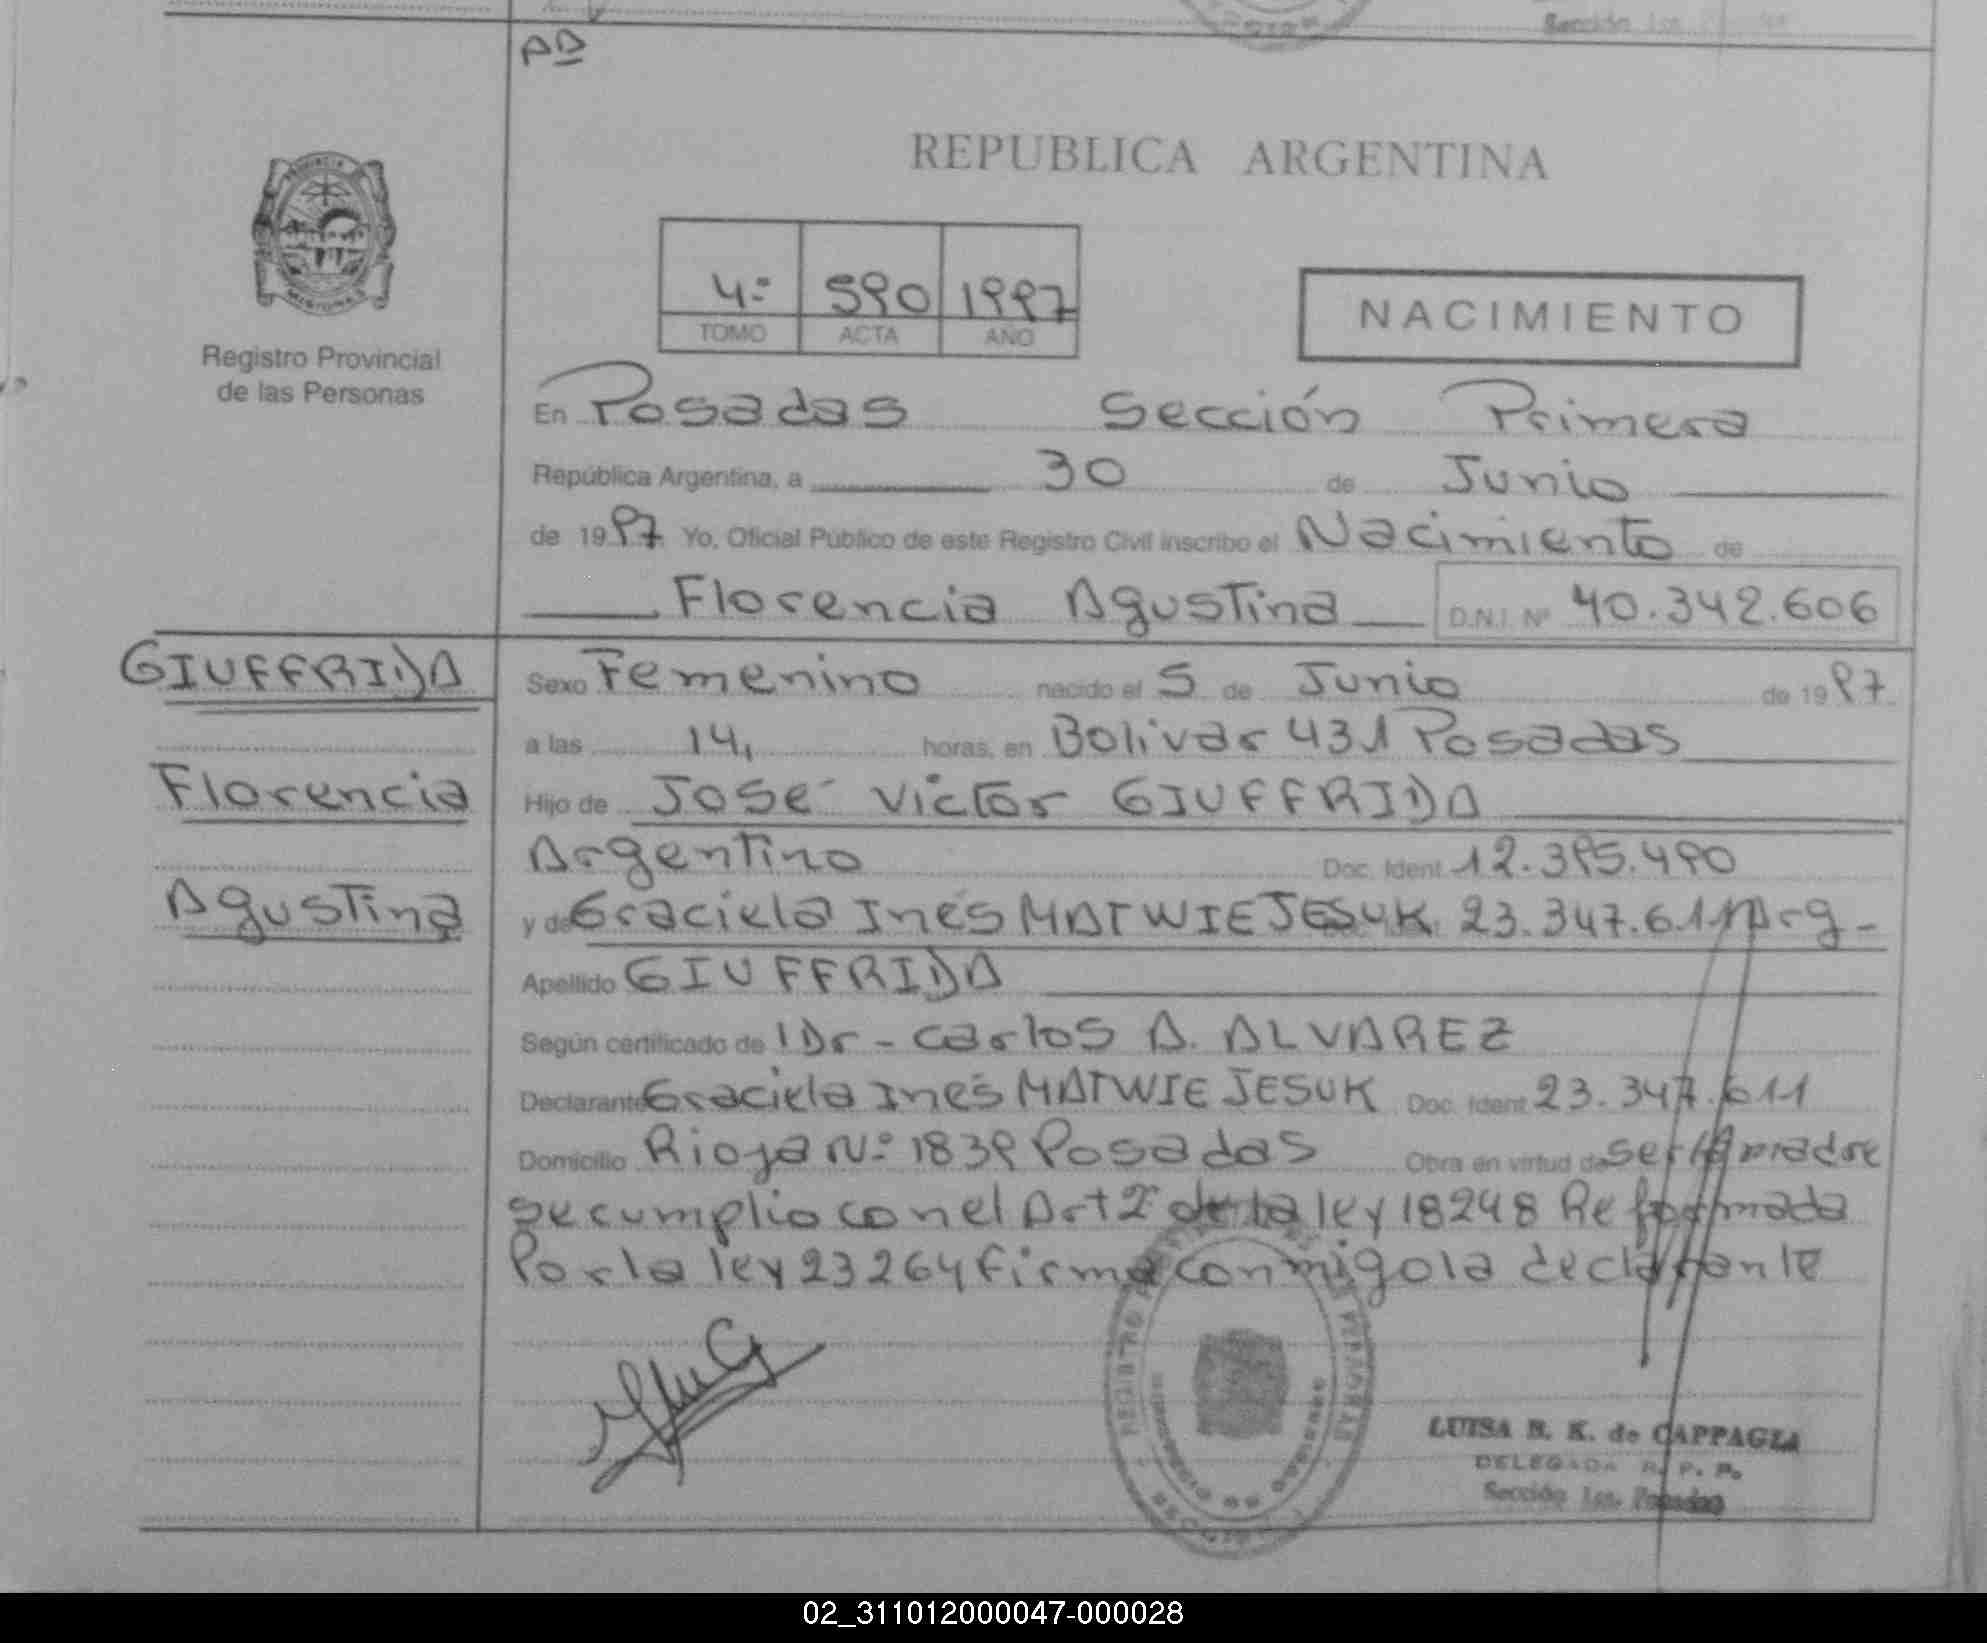 Sección 1ra. Posadas
AD
REPUBLICA ARGENTINA
PROVINCIA
MISIONES
Registro Provincial
de las Personas
4º 590 1997
TOMO ACTA AÑO
NACIMIENTO
En Posadas Sección Primera
República Argentina, a 30 de Junio
de 1997. Yo, Oficial Público de este Registro Civil inscribo el Nacimiento de
Florencia Agustina D.N.I. Nº 40.342.606
GIUFFRIDA
Florencia
Agustina
Sexo Femenino nacido el 5 de Junio de 1997.
a las 14, horas, en Bolivar 431 Posadas
Hijo de José Victor GIUFFRIDA
Argentino Doc. Ident. 12.395.490
y de Graciela Inés MATWIEJESUK 23.347.611 Arg-
Apellido GIUFFRIDA
Según certificado de Dr- Carlos A. ALVAREZ
Declarante Graciela Inés MATWIEJESUK Doc. Ident. 23.347.611
Domicilio Rioja Nº 1839 Posadas Obra en virtud de ser la madre
se cumplio con el Art 2º de la ley 18248 Reformada
Por la ley 23264 firma conmigo la declarante
REGISTRO PERSONAS
MISIONES
LUISA B. K. de CAPPAGLA
DELEGADA R. P. P.
Sección 1ra. Posadas
02_311012000047-000028